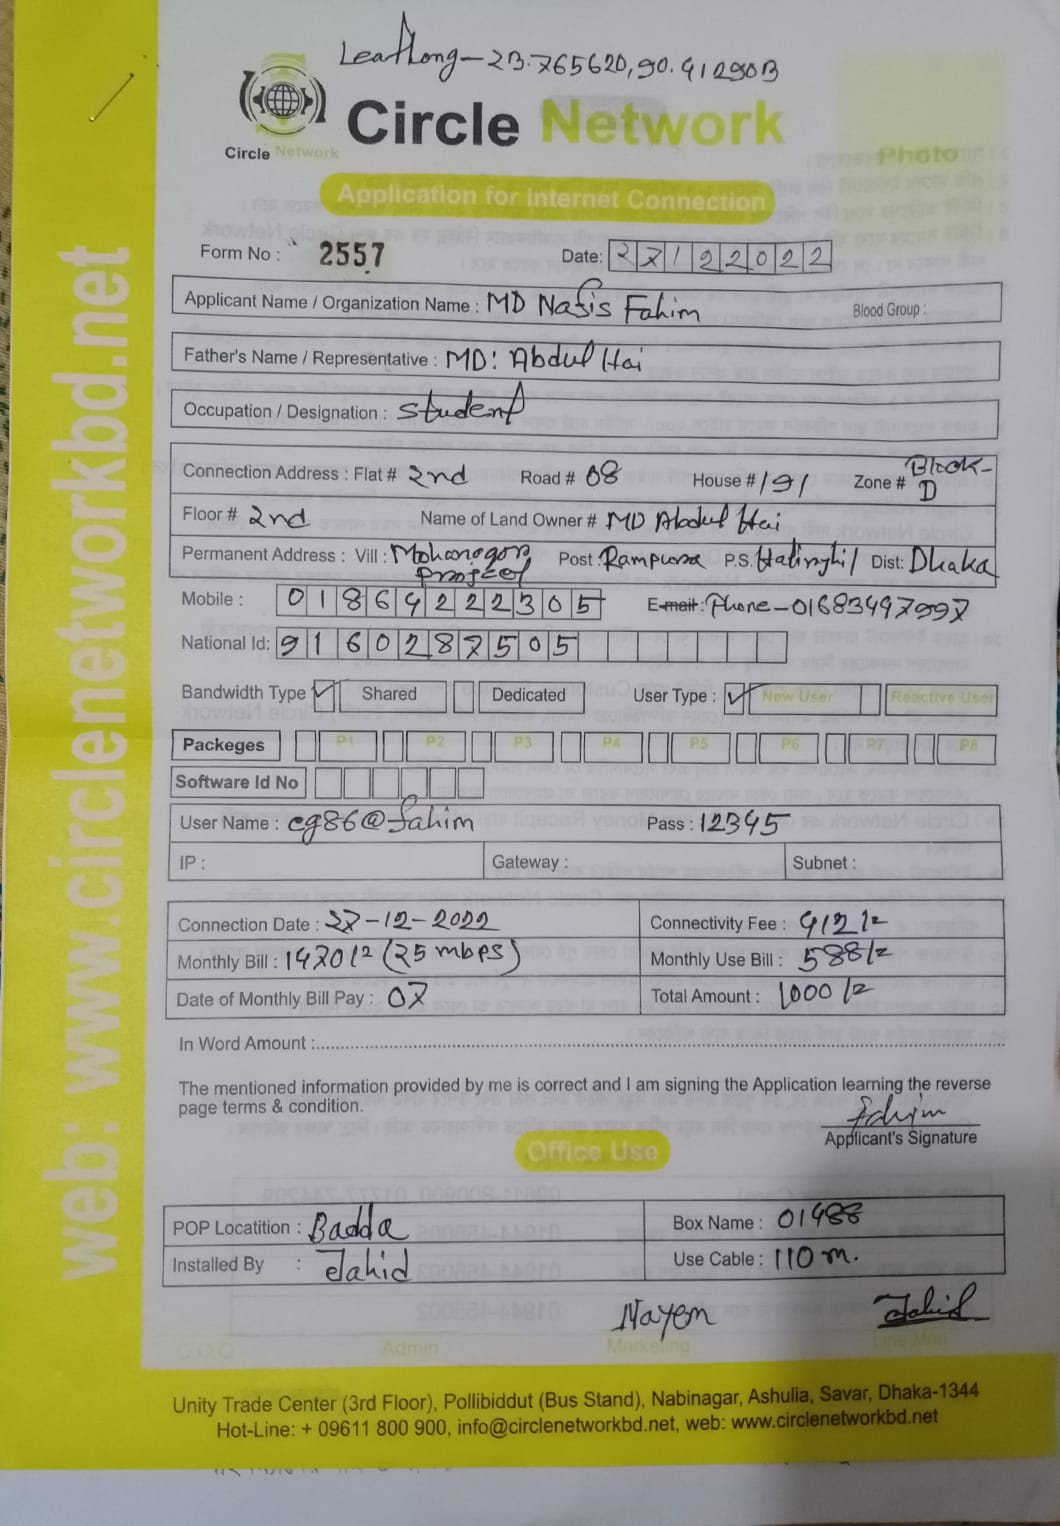 Leatlong-23.765620,90.412903
Circle Network
Circle Network
Photo
Application for Internet Connection
Form No : 2557
Date: 27122022
Applicant Name / Organization Name : MD Nafis Fahim
Blood Group :
Father's Name / Representative : MD: Abdul Hai
Occupation / Designation : Student
Connection Address : Flat # 2nd Road # 08 House # 191 Zone # Block-D
Floor # 2nd Name of Land Owner # MD Abdul Hai
Permanent Address : Vill : Mohanogor project Post : Rampura P.S. Hatirjhil Dist: Dhaka
Mobile : 01864222305 E-mail : Phone-01683497997
National Id: 9160287505
Bandwidth Type Shared Dedicated User Type : New User Reactive User
Packeges P1 P2 P3 P4 P5 P6 P7 P8
Software Id No
User Name : cg86@fahim Pass : 12345
IP : Gateway : Subnet :
Connection Date : 27-12-2022 Connectivity Fee : 412/=
Monthly Bill : 1470/= (25 mbps) Monthly Use Bill : 588/=
Date of Monthly Bill Pay : 07 Total Amount : 1000/=
In Word Amount :
The mentioned information provided by me is correct and I am signing the Application learning the reverse
page terms & condition.
Fahim
Applicant's Signature
Office Use
POP Locatition : Badda Box Name : 01488
Installed By : Jahid Use Cable : 110 m.
Nayem Jahid
C.O.O Admin Marketing Line Man
Unity Trade Center (3rd Floor), Pollibiddut (Bus Stand), Nabinagar, Ashulia, Savar, Dhaka-1344
Hot-Line: + 09611 800 900, info@circlenetworkbd.net, web: www.circlenetworkbd.net
web: www.circlenetworkbd.net